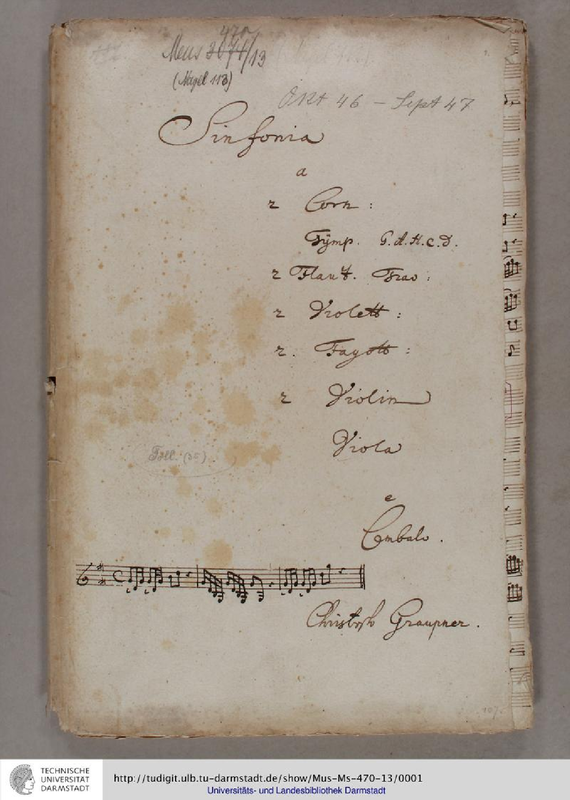 470
Mus 3071/13
(Nagel 113)
Oct 46 – Sept 47
Sinfonia
a
2 Corn:
Tymp. G.A.H.C.D.
2 Flaut. Trav:
2 Violett:
2. Fagott:
2 Violin
Viola
e
Cembalo.
Christoph Graupner.
TECHNISCHE
UNIVERSITÄT
DARMSTADT
http://tudigit.ulb.tu-darmstadt.de/show/Mus-Ms-470-13/0001
Universitäts- und Landesbibliothek Darmstadt